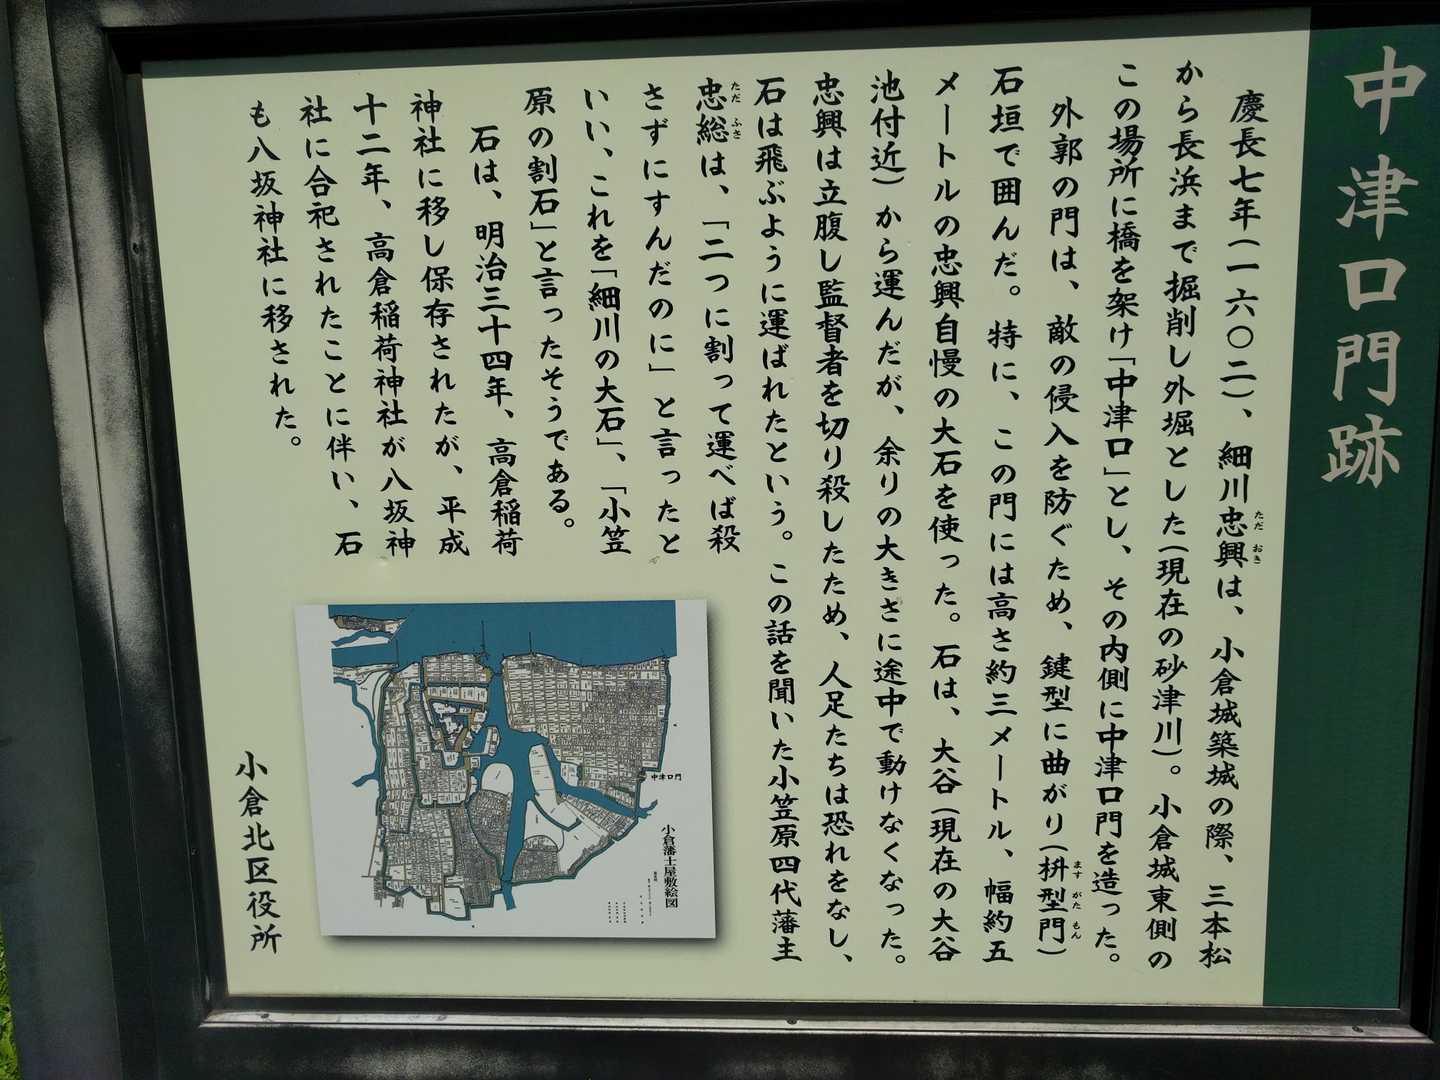 中津口門跡
慶長七年(一六〇二)、細川忠興は、小倉城築城の際、三本松
ただ おき
から長浜まで掘削し外堀とした(現在の砂津川)。小倉城東側の
この場所に橋を架け「中津口」とし、その内側に中津口門を造った。
外郭の門は、敵の侵入を防ぐため、鍵型に曲がり(枡型門)
ます がた もん
石垣で囲んだ。特に、この門には高さ約三メートル、幅約五
メートルの忠興自慢の大石を使った。石は、大谷(現在の大谷
池付近)から運んだが、余りの大きさに途中で動けなくなった。
忠興は立腹し監督者を切り殺したため、人足たちは恐れをなし、
石は飛ぶように運ばれたという。この話を聞いた小笠原四代藩主
忠総は、「二つに割って運べば殺
ただ ふさ
さずにすんだのに」と言ったと
いい、これを「細川の大石」、「小笠
原の割石」と言ったそうである。
石は、明治三十四年、高倉稲荷
神社に移し保存されたが、平成
十二年、高倉稲荷神社が八坂神
社に合祀されたことに伴い、石
も八坂神社に移された。
中津口門
小倉藩士屋敷絵図
小倉北区役所